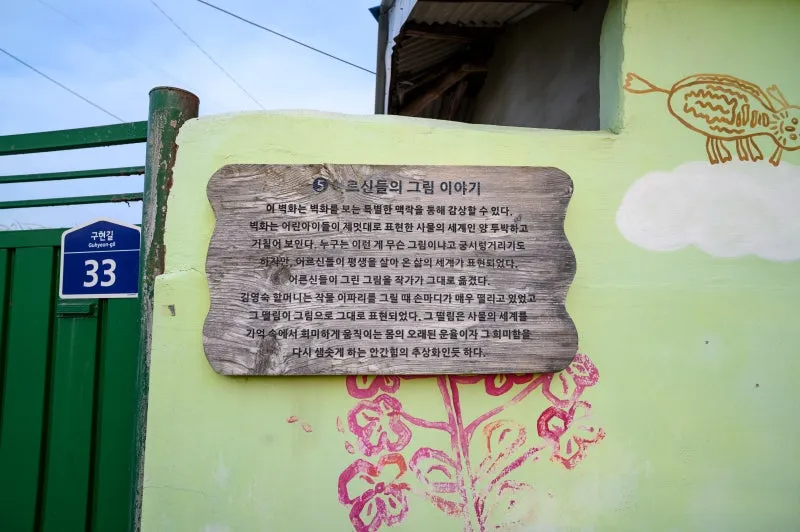 구현길
Guhyeon-gil
33
5 어르신들의 그림 이야기
이 벽화는 벽화를 보는 특별한 맥락을 통해 감상할 수 있다.
벽화는 어린아이들이 제멋대로 표현한 사물의 세계인 양 투박하고
거칠어 보인다. 누구는 이런 게 무슨 그림이냐고 궁시렁거리기도
하지만, 어르신들이 평생을 살아 온 삶의 세계가 표현되었다.
어른신들이 그린 그림을 작가가 그대로 옮겼다.
김영숙 할머니는 작물 이파리를 그릴 때 손마디가 매우 떨리고 있었고
그 떨림이 그림으로 그대로 표현되었다. 그 떨림은 사물의 세계를
기억 속에서 희미하게 움직이는 몸의 오래된 운율이자 그 희미함을
다시 샘솟게 하는 안간힘의 추상화인듯 하다.